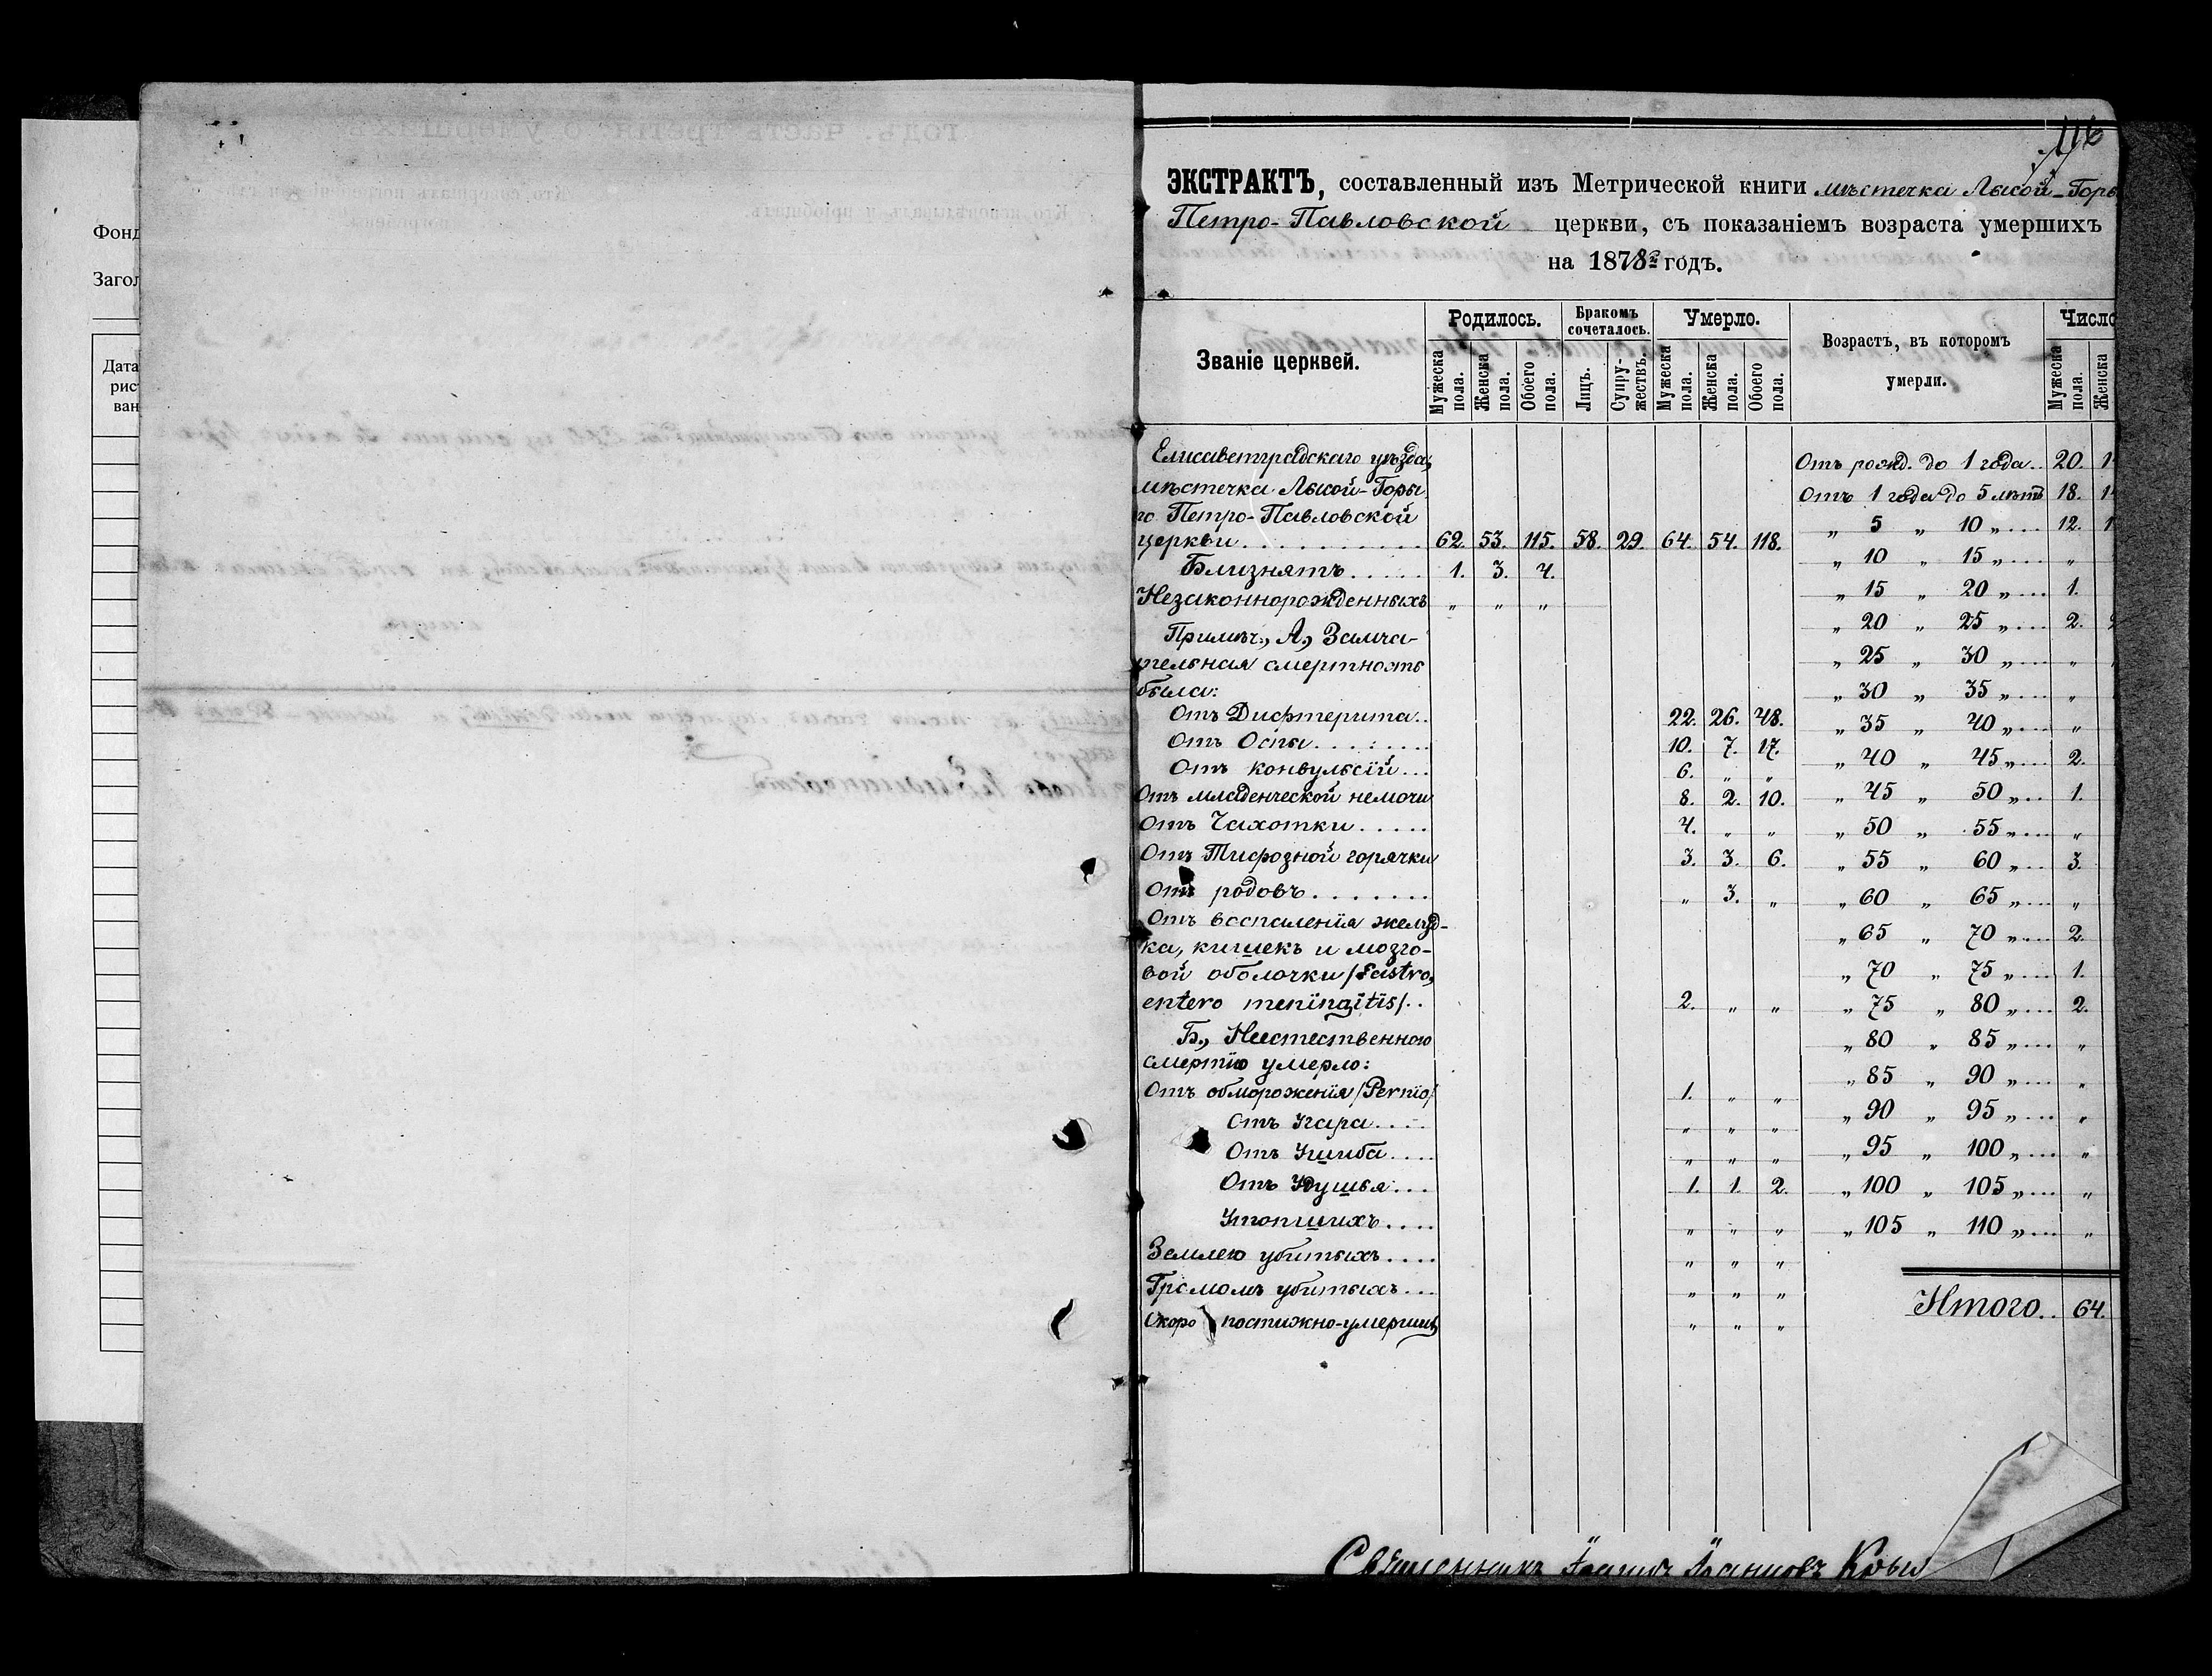 Фонд
Загол
Дата
рис
ван
116
ЭКСТРАКТЪ, составленный изъ Метрической книги мѣстечка Лысой-Горы
Петро-Павловской церкви, съ показаніемъ возраста умершихъ
на 1878й годъ.
Званіе церквей.
Родилось.
Бракомъ сочеталось.
Умерло.
Возрастъ, въ которомъ умерли.
Число
Мужеска пола. Женска пола. Обоего пола. Лицъ. Супружествъ. Мужеска пола. Женска пола. Обоего пола. Мужеска пола. Женска
Елисаветградскаго уѣзда,
мѣстечка Лысой-Горы
Петро-Павловской
церкви 62. 53. 115. 58. 29. 64. 54. 118.
Близнятъ 1. 3. 4.
Незаконнорожденныхъ „ „ „
Примѣч., А, Замѣча-
тельная смертность
была:
Отъ Дифтерита.. 22. 26. 48.
Отъ Оспы 10. 7. 17.
Отъ конвульсій... 6. „ „
Отъ младенческой немочи 8. 2. 10.
Отъ Чахотки..... 4. „ „
Отъ Тифозной горячки 3. 3. 6.
Отъ родовъ „ 3. „
Отъ воспаленія желуд-
ка, кишекъ и мозго-
вой оболочки /Gastro,
entero meningitis/.. 2. „ „
Б., Неестественною
смертію умерло:
Отъ обмороженія /Pernio/ 1. „ „
Отъ Угара.... „ „ „
Отъ Ушиба.... „ „ „
Отъ Удушья... 1. 1. 2.
Утопшихъ.... „ „ „
Землею убитыхъ.... „ „ „
Громомъ убитыхъ... „ „ „
Скоропостижно-умерших „ „ „
Отъ рожд. до 1 года.. 20. 1
Отъ 1 года до 5 лѣтъ 18. 1
„ 5 „ 10 „.... 12. 1
„ 10 „ 15 „.... „
„ 15 „ 20 „.... 1.
„ 20 „ 25 „.... 2. 2
„ 25 „ 30 „.... „
„ 30 „ 35 „.... „
„ 35 „ 40 „.... „
„ 40 „ 45 „.... 2.
„ 45 „ 50 „... 1.
„ 50 „ 55 „.... „
„ 55 „ 60 „.... 3.
„ 60 „ 65 „.... „
„ 65 „ 70 „.... 2.
„ 70 „ 75 „.... 1.
„ 75 „ 80 „.... 2.
„ 80 „ 85 „.... „
„ 85 „ 90 „.... „
„ 90 „ 95 „.... „
„ 95 „ 100 „.... „
„ 100 „ 105 „.... „
„ 105 „ 110 „.... „
Итого.. 64.
Священникъ Іоаннъ Іоанновъ Крыж